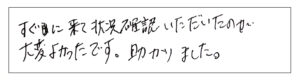 すぐに来て状況確認いただいたのが
大変よかったです。助かりました。